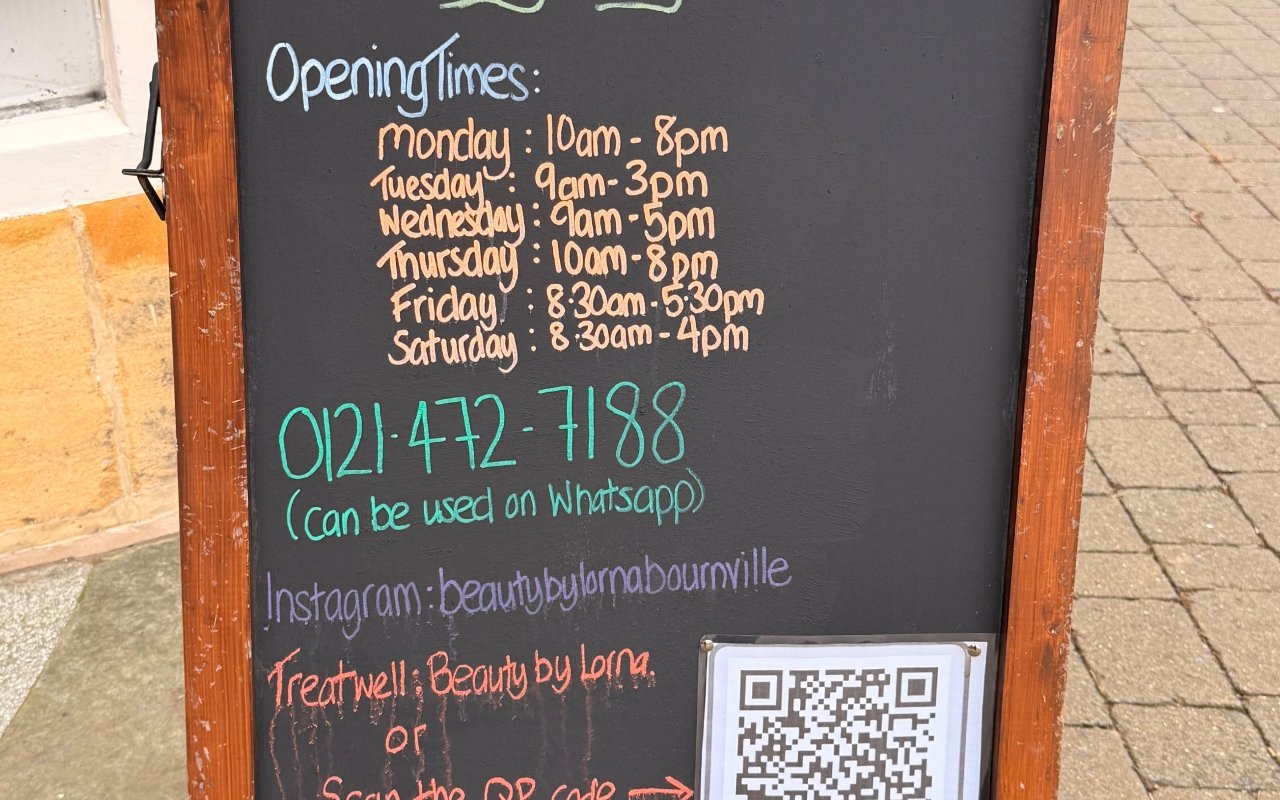 Opening Times:
Monday : 10am - 8pm
Tuesday : 9am - 3pm
Wednesday : 9am - 5pm
Thursday : 10am - 8pm
Friday : 8:30am - 5:30pm
Saturday : 8:30am - 4pm
0121-472-7188
(can be used on Whatsapp)
Instagram: beautybylornabournville
Treatwell: Beauty by Lorna.
or
Scan the QR code →